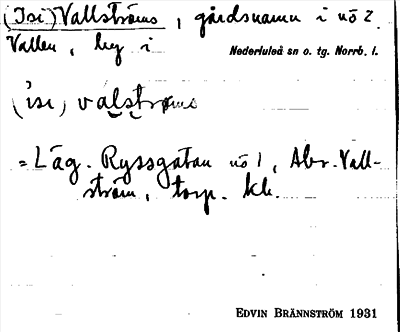 (Isi) Vallströms, gårdsnamn i nö 2
Vallen, by i Nederluleå sn o. tg. Norrb. l.
('isi) valströms
= Läg. Ryssgatan nö 1, Abr. Vall-
ström, torp. kh.
EDVIN BRÄNNSTRÖM 1931